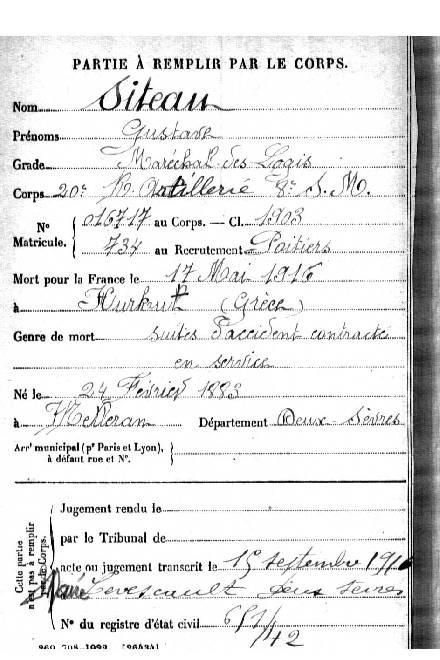 PARTIE À REMPLIR PAR LE CORPS.
Nom Siteau
Prénoms Gustave
Grade Maréchal des Logis
Corps 20e R. Artillerie 8e S. M.
N° Matricule. 016717 au Corps. — Cl. 1903
734 au Recrutement Poitiers
Mort pour la France le 17 Mai 1916
à (Grèce)
Genre de mort suites d'accident contracté
en service
Né le 24 Février 1883
à Melleran Département Deux Sèvres
Arrt municipal (pr Paris et Lyon), à défaut rue et N°.
Cette partie n'est pas à remplir par le Corps.
Jugement rendu le
par le Tribunal de
acte ou jugement transcrit le 15 septembre 1916
Levescault Deux Sèvres
N° du registre d'état civil